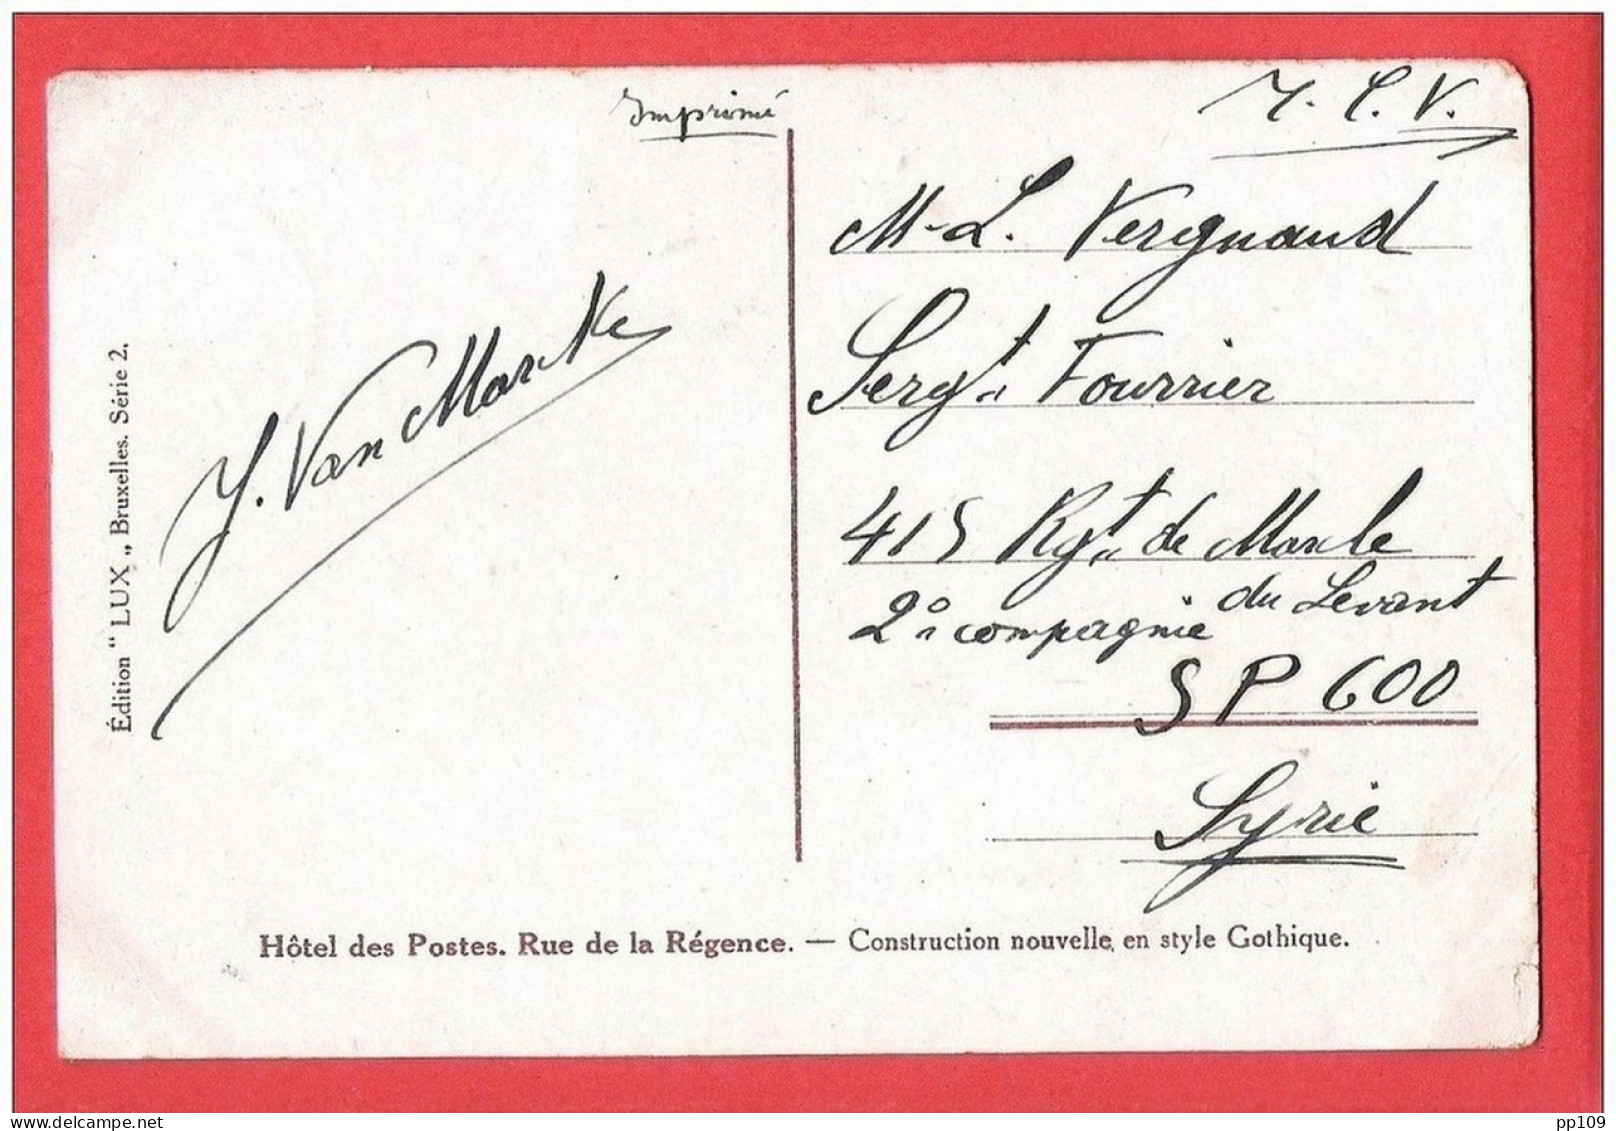 Imprimé
T. C. V.
M. L. Vergnaud
Sergt Fourrier
415 Rgt de Marche
du Levant
2e compagnie
S P 600
Syrie
J. Van Marcke
Édition "LUX„ Bruxelles. Série 2.
Hôtel des Postes. Rue de la Régence. — Construction nouvelle, en style Gothique.
delcampe.net
pp109